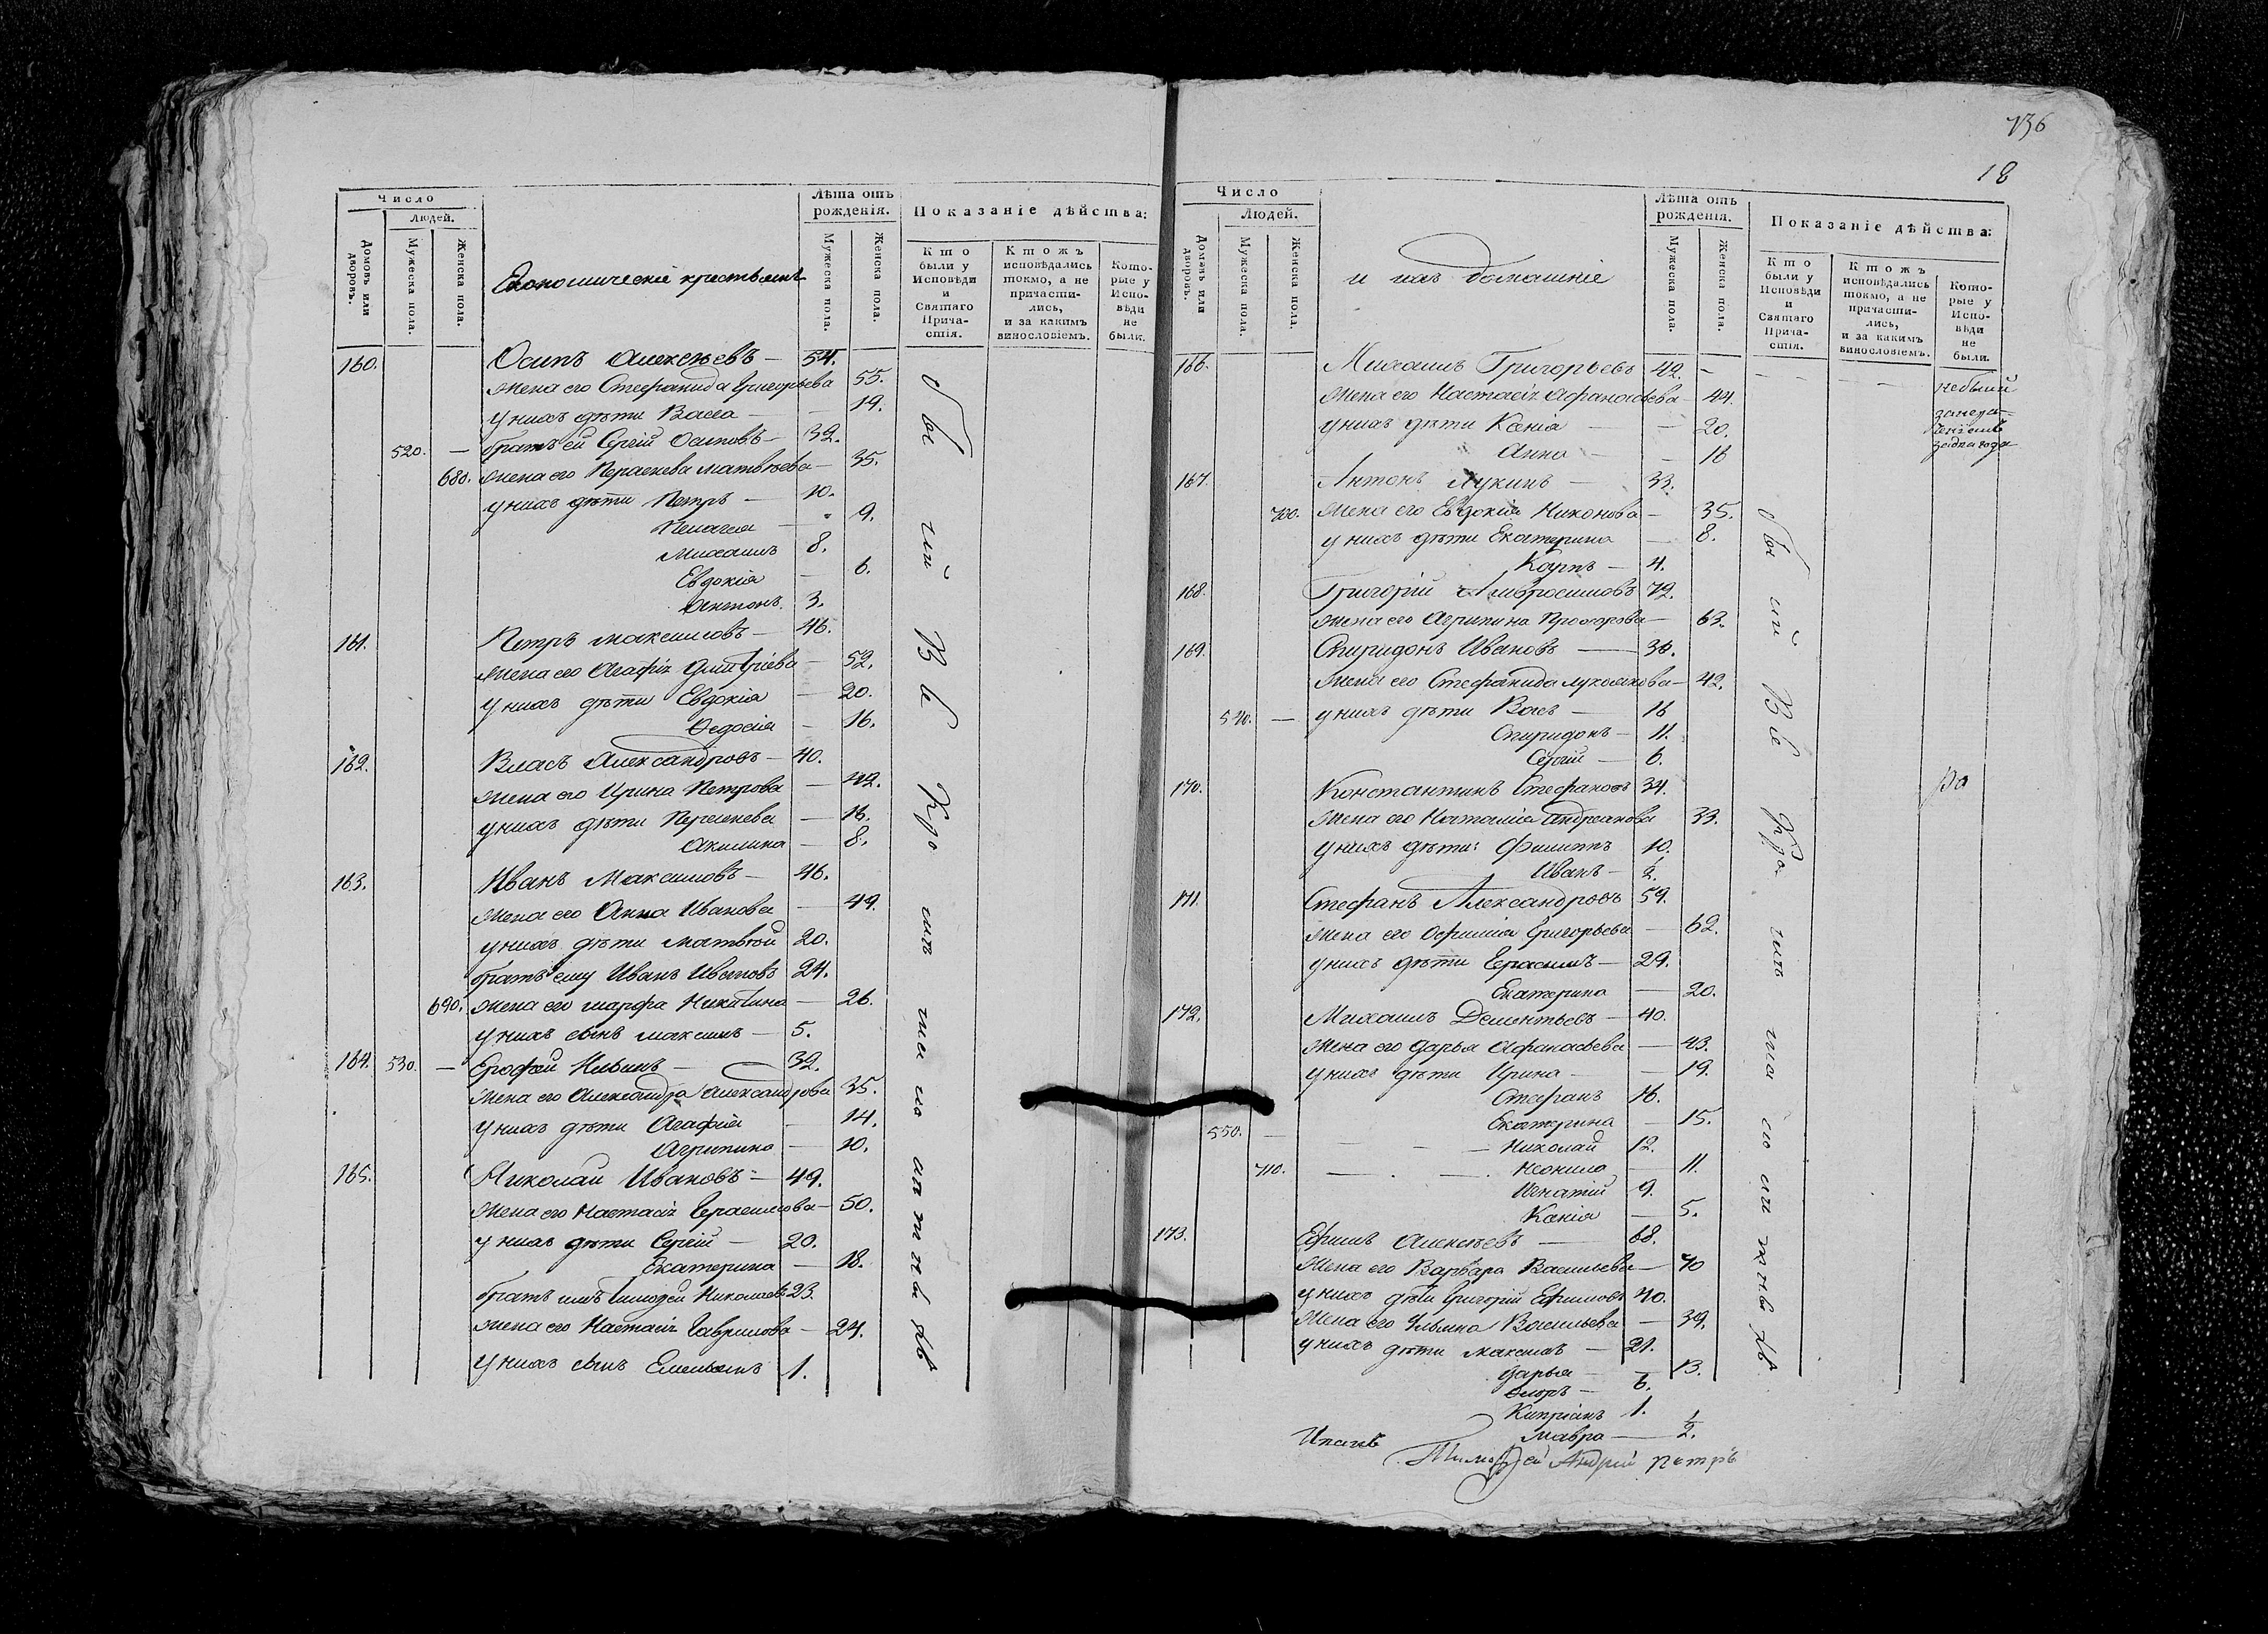 736
18
Число
Людей.
Домовъ или дворовъ.
Мужеска пола.
Женска пола.
Економическіе крестьяне
Лѣта отъ рожденія.
Мужеска пола.
Женска пола.
Показаніе дѣйства:
Кто были у Исповѣди и Святаго Причастія.
Ктожъ исповѣдались токмо, а не причастились, и за какимъ винословіемъ.
Которые у Исповѣди не были.
160. Осипъ Алексѣевъ — 54.
Жена его Стефанида Григорьева 55.
у нихъ дѣти Васса — 19.
520. — братъ ей Сергій Осиповъ — 32.
680. Жена его Параскева Матвѣева — 35.
у нихъ дѣти Петръ — 10.
Пелагея — 9.
Михаилъ 8.
Евдокія — 6.
Антонъ 3.
161. Петръ Максимовъ — 46.
Жена его Агафія Дмитріева — 52.
у нихъ дѣти Евдокія — 20.
Ѳедосія — 16.
162. Власъ Александровъ — 40.
Жена его Ирина Петрова — 42.
у нихъ дѣти Параскева — 16.
Акилина — 8.
163. Иванъ Максимовъ — 46.
Жена его Анна Иванова — 49.
у нихъ дѣти Матвѣй 20.
братъ ему Иванъ 24.
690. Жена его Марфа Никитина — 26.
у нихъ сынъ Максимъ — 5.
164. 530. — Ерофей Ильинъ — 32.
Жена его Александра Александрова 35.
у нихъ дѣти Агафія — 14.
Агрипина — 10.
165. Николай Ивановъ — 49.
Жена его Настасія Герасимова — 50.
у нихъ дѣти Сергій — 20.
Екатерина — 18.
братъ имъ Тимоѳей Николаевъ 23.
Жена его Настасія Гаврилова — 24.
у нихъ сынъ Емельянъ 1.
Число
Людей.
Домовъ или дворовъ.
Мужеска пола.
Женска пола.
и ихъ домашніе
Лѣта отъ рожденія.
Мужеска пола.
Женска пола.
Показаніе дѣйства:
Кто были у Исповѣди и Святаго Причастія.
Ктожъ исповѣдались токмо, а не причастились, и за какимъ винословіемъ.
Которые у Исповѣди не были.
166. Михаилъ Григорьевъ 42. — небылъ
Жена его Настасія Афанасьева — 44.
у нихъ дѣти Ксенія — 20.
Анна — 16
167. Антонъ Лукинъ — 33.
700. Жена его Евдокія Никонова — 35.
у нихъ дѣти Екатерина — 8.
Карпъ — 4.
168. Григорій Амвросимовъ 72.
Жена его Агрипина Прохорова — 63.
169. Спиридонъ Ивановъ — 36.
Жена его Стефанида — 42.
540. — у нихъ дѣти Власъ — 16
Спиридонъ — 11.
Сергій — 6.
170. Константинъ Стефановъ 34.
Жена его Наталія Андреанова 33.
у нихъ дѣти: Филиппъ 10.
Иванъ — 2.
171. Стефанъ Александровъ 59.
Жена его Григорьева — 62.
у нихъ дѣти Герасимъ — 29.
Екатерина — 20.
172. Михаилъ Дементьевъ — 40.
Жена его Дарья Афанасьева — 43.
у нихъ дѣти Ирина — 19.
Стефанъ 16.
Екатерина — 15.
550. — Николай 12.
710. — Неонила — 11.
Игнатій 9.
Ксенія — 5.
173. Ефимъ Алексѣевъ — 68.
Жена его Варвара Васильева — 70
у нихъ дѣти Григорій Ефимовъ 40.
Жена его Ульяна Васильева — 39.
у нихъ дѣти Максимъ — 21.
Дарья — 13.
6.
Кипріанъ 1.
Мавра — 1/2.
Тимофей Андрей Петръ